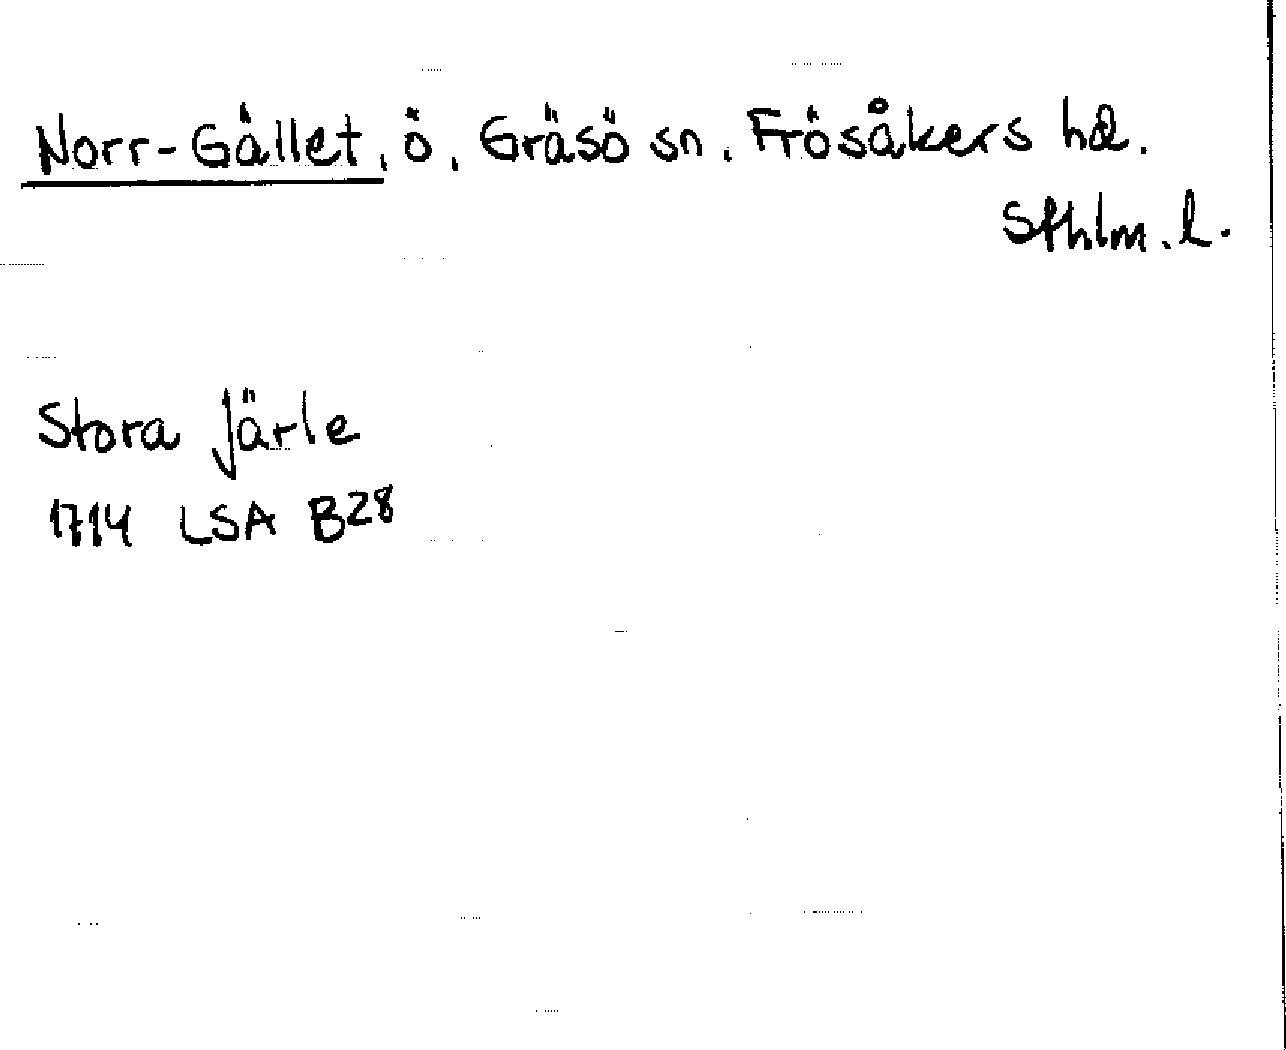 Norr-Gället, ö, Gräsö sn, Frösåkers hd.
Sthlm. l.
Stora Järle
1714 LSA B28